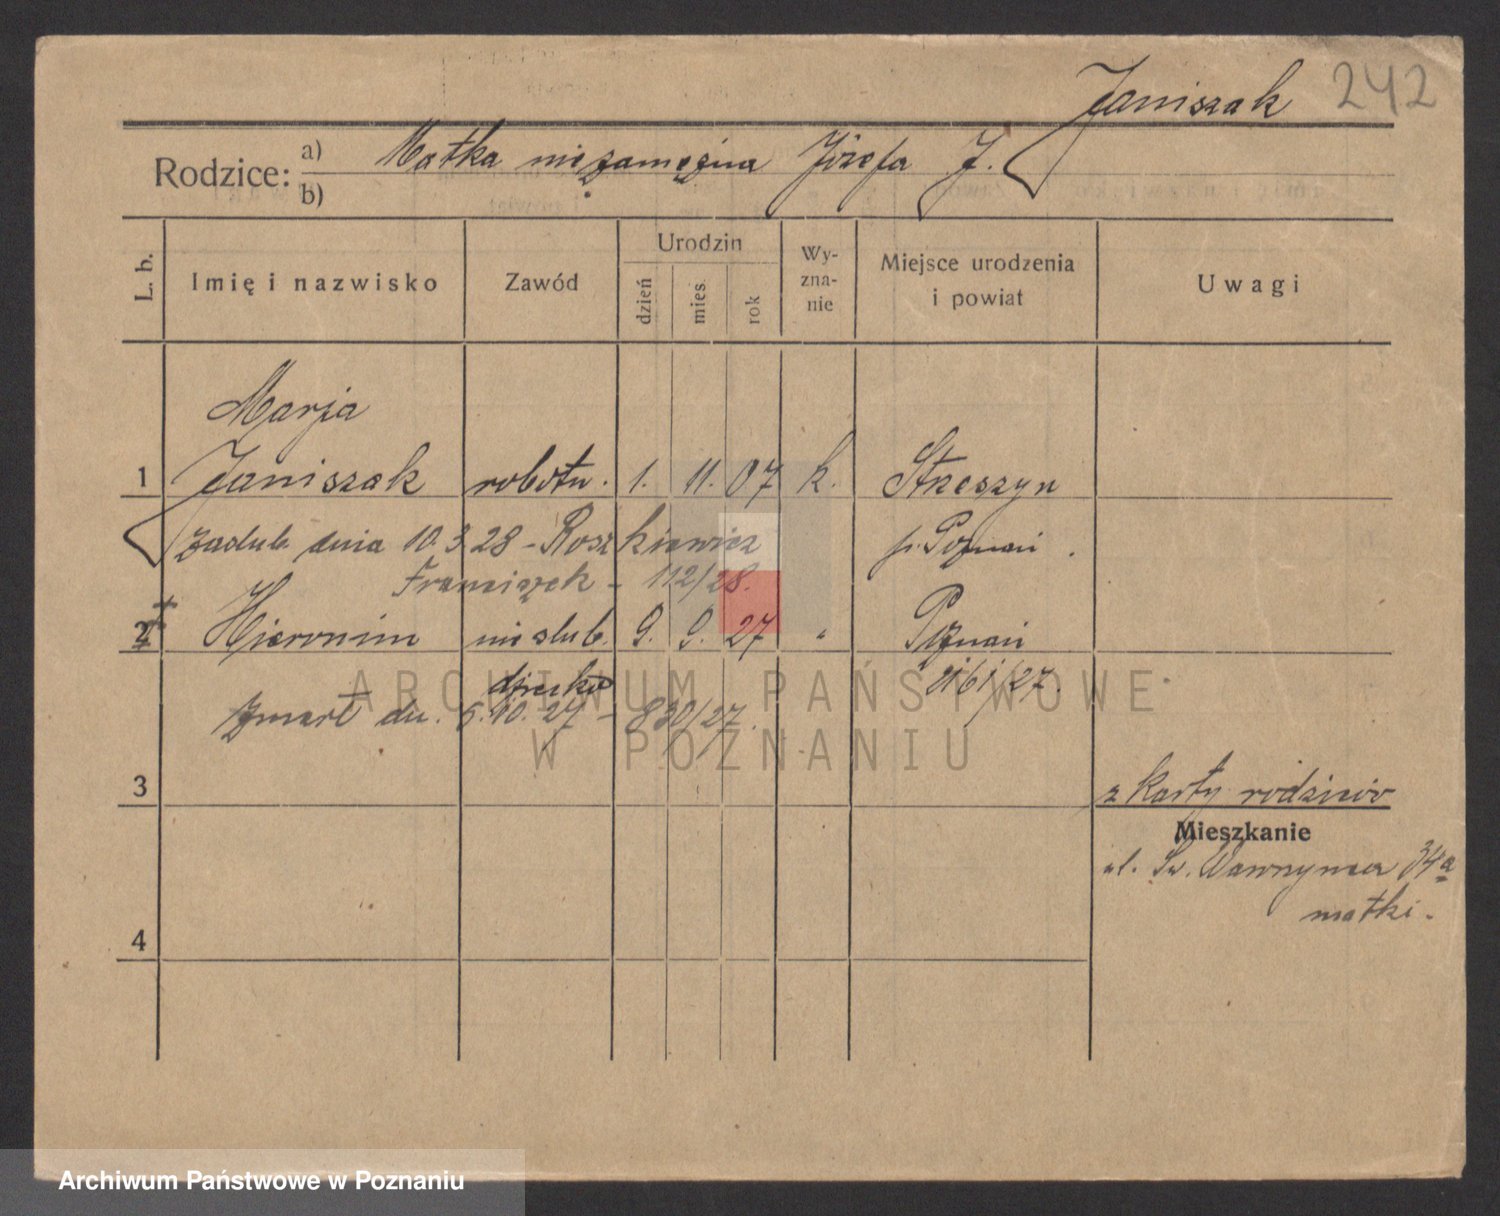 Janiszak 242
Rodzice: a) Matka niezamężna Józefa J.
b)
L. b. Imię i nazwisko Zawód Urodzin Wy-zna-nie Miejsce urodzenia i powiat Uwagi
dzień mies. rok
Marja
1 Janiszak robotn. 1. 11. 07 k. Strzeszyn
zaślub. dnia 10.3.28 - Roszkiewicz p. Poznań.
Franciszek - 112/28.
2 Hieronim nieślub. 9. 9. 27 " Poznań
dziecko
Zmarł dn. 5.10.27 - 830/27.
3
z karty rodziców
Mieszkanie
ul. Św. Wawrzyńca 34a
matki.
4
ARCHIWUM PAŃSTWOWE
W POZNANIU
Archiwum Państwowe w Poznaniu